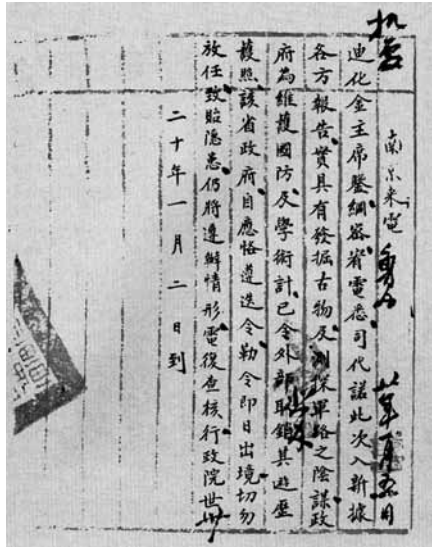 南京來電
迪化金主席鑒綱密宥電悉司代諾此次入新據
各方報告實具有發掘古物及測探軍路之陰謀政
府為維護國防及學術計已令外部取銷其遊歷
護照該省政府自應恪遵迭令勒令即日出境切勿
放任致貽隱患仍將遵辦情形電復查核行政院世
二十年一月二日到